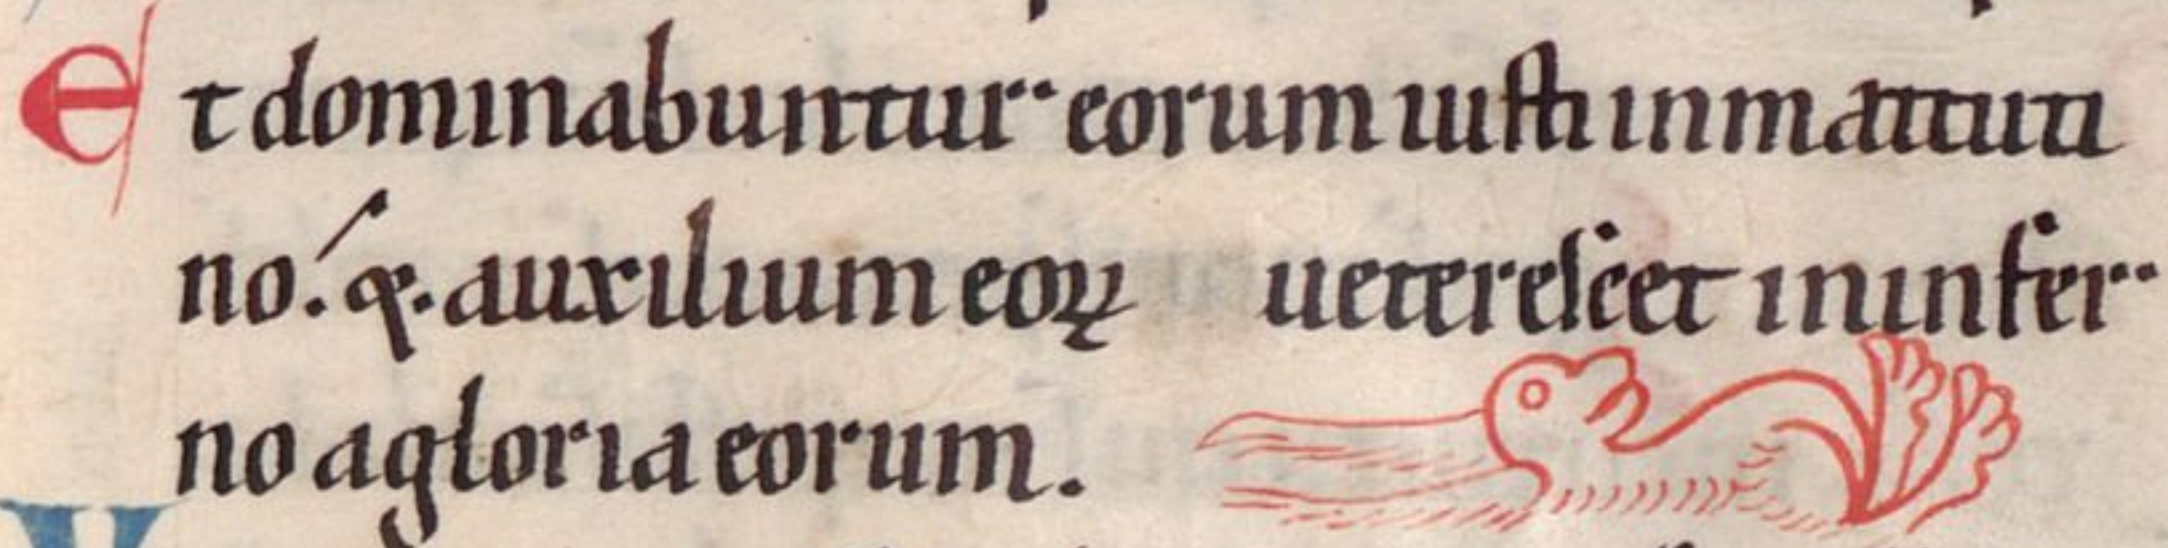 Et dominabuntur eorum iusti in matuti
no. q̄. auxilium eoꝝ ueterescet in infer
no a gloria eorum.